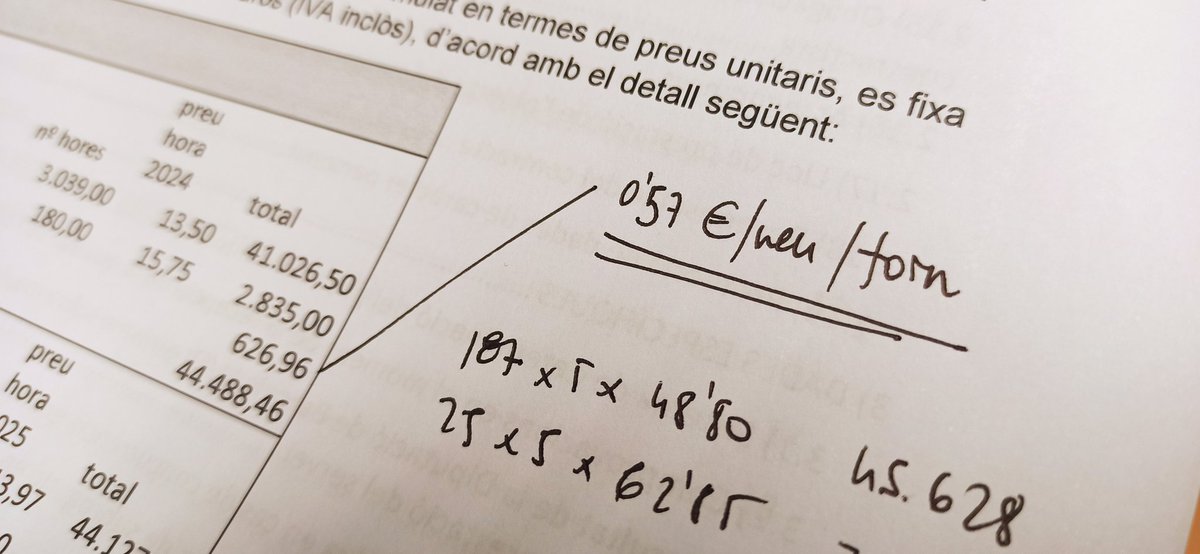 en termes de preus unitaris, es fixa
(IVA inclòs), d'acord amb el detall següent:
preu
nº hores hora
2024 total
3.039,00 13,50 41.026,50
180,00 15,75 2.835,00
626,96
44.488,46
preu
hora
025 total
3,97 44.127
0'57 €/nen/torn
187 x 5 x 48'80
25 x 5 x 62'85
45.628